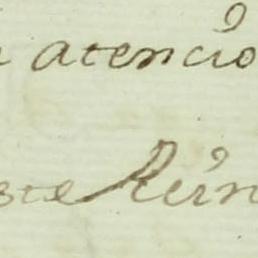 atencio
ste Rein